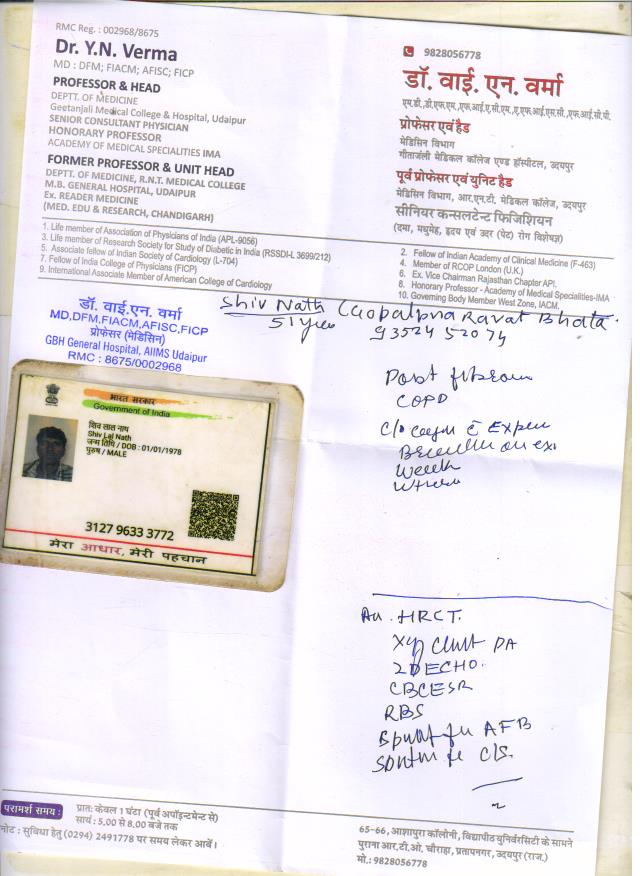 RMC Reg. : 002968/8675
Dr. Y.N. Verma
MD : DFM; FIACM; AFISC; FICP
PROFESSOR & HEAD
DEPTT. OF MEDICINE
Geetanjali Medical College & Hospital, Udaipur
SENIOR CONSULTANT PHYSICIAN
HONORARY PROFESSOR
ACADEMY OF MEDICAL SPECIALITIES IMA
FORMER PROFESSOR & UNIT HEAD
DEPTT. OF MEDICINE, R.N.T. MEDICAL COLLEGE
M.B. GENERAL HOSPITAL, UDAIPUR
Ex. READER MEDICINE
(MED. EDU & RESEARCH, CHANDIGARH)
9828056778
डॉ. वाई. एन. वर्मा
एम.डी.,डी.एफ.एम.,एफ.आई.ए.सी.एम.,ए.एफ.आई.एस.सी.,एफ.आई.सी.पी.
प्रोफेसर एवं हैड
मेडिसिन विभाग
गीतांजली मेडिकल कॉलेज एण्ड हॉस्पीटल, उदयपुर
पूर्व प्रोफेसर एवं युनिट हैड
मेडिसिन विभाग, आर.एन.टी. मेडिकल कॉलेज, उदयपुर
सीनियर कन्सलटेन्ट फिजिशियन
(दमा, मधुमेह, हृदय एवं उदर (पेट) रोग विशेषज्ञ)
1. Life member of Association of Physicians of India (APL-9056)
3. Life member of Research Society for Study of Diabetic in India (RSSDI-L 3699/212)
5. Associate fellow of Indian Society of Cardiology (L-704)
7. Fellow of India College of Physicians (FICP)
9. International Associate Member of American College of Cardiology
2. Fellow of Indian Academy of Clinical Medicine (F-463)
4. Member of RCOP London (U.K.)
6. Ex. Vice Chairman Rajasthan Chapter API.
8. Honorary Professor - Academy of Medical Specialities-IMA
10. Governing Body Member West Zone, IACM.
Shiv Nath Gopalpura Ravat Bhata
51
93524 52074
डॉ. वाई.एन. वर्मा
MD,DFM,FIACM,AFISC,FICP
प्रोफेसर (मेडिसिन)
GBH General Hospital, AIIMS Udaipur
RMC : 8675/0002968
भारत सरकार
Government of India
शिव लाल नाथ
Shiv Lal Nath
जन्म तिथि / DOB : 01/01/1978
पुरुष / MALE
3127 9633 3772
मेरा आधार, मेरी पहचान
Post
COPD
C/o
HRCT.
PA
2DECHO.
CBCESR
RBS
AFB
C/S.
परामर्श समय :
प्रातः केवल 1 घंटा (पूर्व अपॉइन्टमेन्ट से)
सायं : 5.00 से 8.00 बजे तक
नोट : सुविधा हेतु (0294) 2491778 पर समय लेकर आवें।
65-66, आशापुरा कॉलोनी, विद्यापीठ युनिवरसिटी के सामने
पुराना आर.टी.ओ. चौराहा, प्रतापनगर, उदयपुर (राज.)
मो.: 9828056778